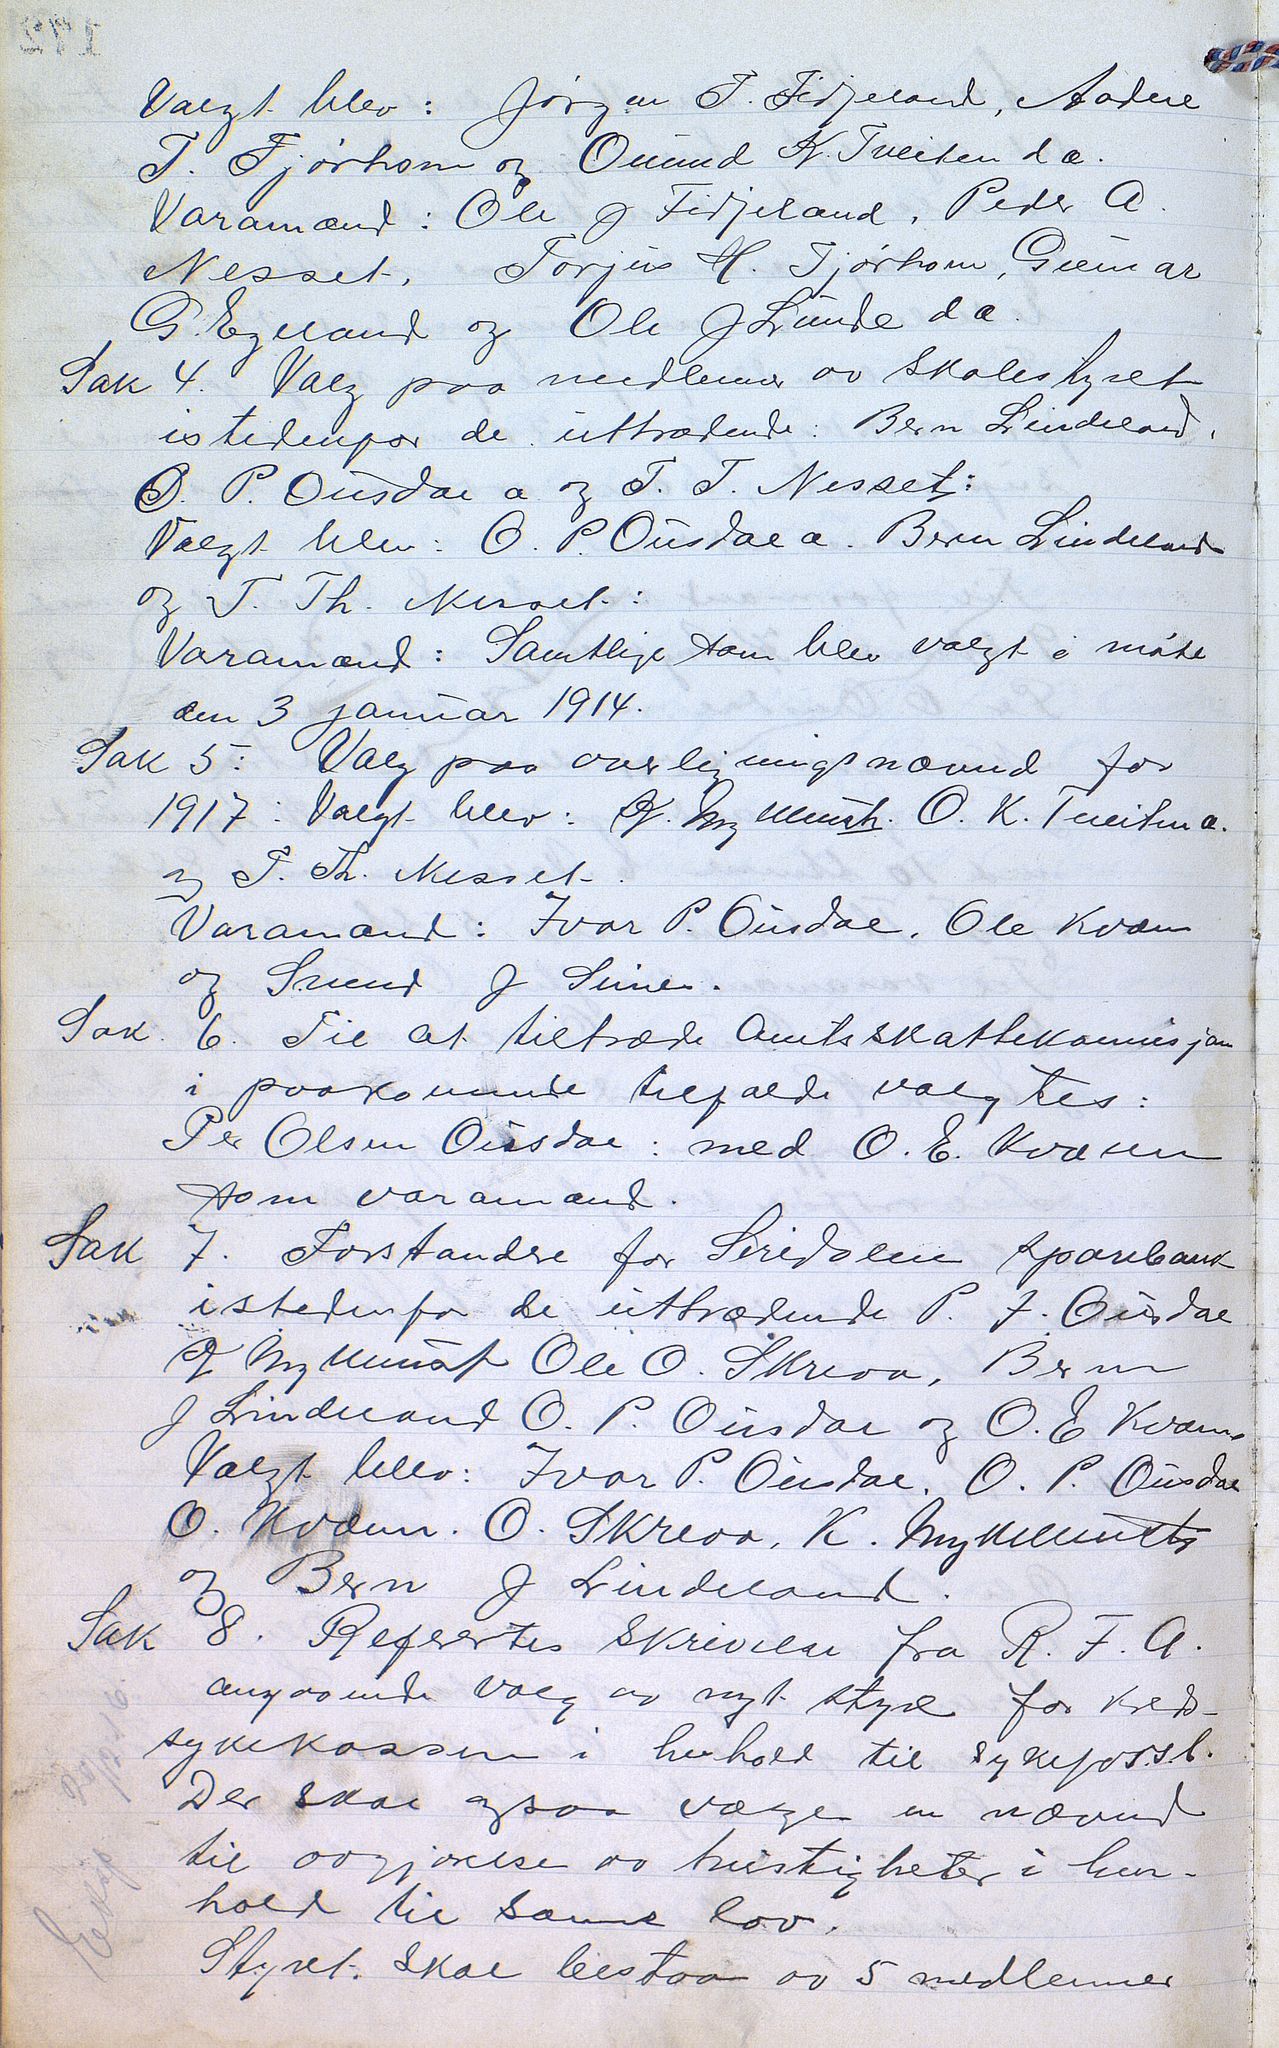 Valgt blev: Jørgen T. Fidjeland, Aadne
T. Tjørhom og Omund K. Tveiten d æ.
Varamænd: Ole J Fidjeland, Peder A.
Nesset, Torjus H. Tjørhom, Gunnar
G. Egeland og Ole J Lunde d æ.
Sak 4. Valg paa medlemer av skolestyret
istedenfor de uttrædende: Bern Lindeland,
O. P. Ousdal a og T. T. Nesset:
Valgt blev: O. P. Ousdal a. Bern Lindeland
og T. Th. Nesset:
Varamænd: Samtlige som blev valgt i møte
den 3 januar 1914.
Sak 5: Valg paa overligningsnævnd for
1917: Valgt blev: K. Nyklemsk. O. K. Tveiten a.
og T. Th. Nesset.
Varamænd: Ivar P. Ousdal, Ole Kvæven
og Svend J Sinnes.
Sak 6. Til at tiltræde Amtsskattekomisjon
i paakomende tilfælde valgtes:
Per Olsen Ousdal: med O. E. Kvæven
som varamænd.
Sak 7. Forstandere for Siredalen sparebank
istedenfor de uttrædende P. I. Ousdal
K Nyklemsk Ole O. Skreaa, Bern
J Lindeland O. P. Ousdal og O. E Kvæven
Valgt blev: Ivar P. Ousdal, O. P. Ousdal
O. Kvæven. O. Skreaa, K. Nyklemsk
og Bern J Lindeland.
Sak 8. Refertes skrivelse fra R. F. A.
angaaende valg av nyt styre for kreds-
sykekassen i henhold til sykefors.l.
Der skal ogsaa vælge en nævnd
til avgjørelse av tvistigheter i hen-
hold til samme lov.
Styret skal bestaa av 5 medlemmer